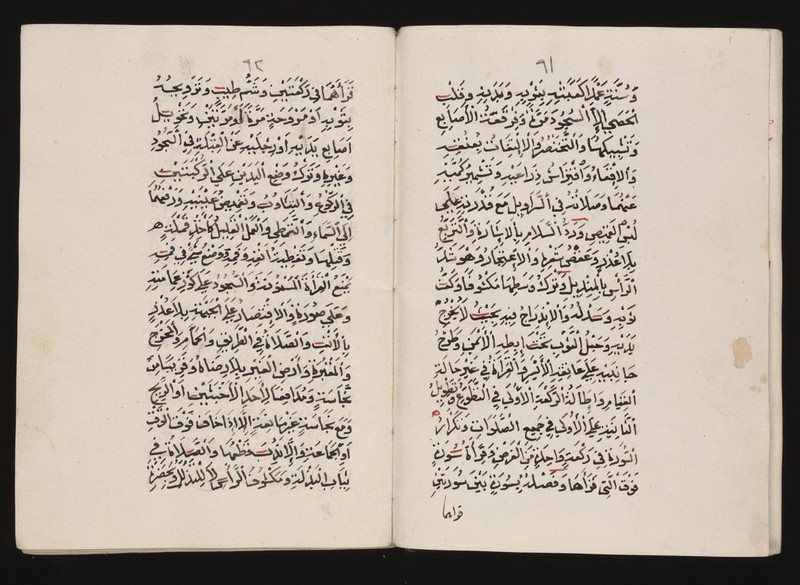 ٦١
وسنة عمدا كعبثه بثوبه وبدنه وقلب
الحصى إلا للسجود مرة وفرقعة الأصابع
وتشبيكها والتخصر والالتفات بعنقه
والإقعاء وافتراش ذراعيه وتشمير كميه
عنهما وصلاته في السراويل مع قدرته على
لبس القميص ورد السلام بالإشارة والتربع
بلا عذر وعقص شعره والاعتجار وهو شد
الرأس بالمنديل وترك وسطها مكشوفا وكف
ثوبه وسدله والاندراج فيه بحيث لا يخرج
يديه وجعل الثوب تحت إبطه الأيمن وطرح
جانبيه على عاتقه الأيسر والقراءة في غير حالة
القيام وإطالة الركعة الأولى في التطوع وتطويل
الثانية على الأولى في جميع الصلوات وتكرار
السورة في ركعة واحدة من الفرض وقراءة سورة
فوق التي قرأها وفصله بسورة بين سورتين
قراهما
٦٢
قرأهما في ركعتين وشم طيب وترويحه
بثوبه أو مروحة مرة أو مرتين وتحويل
أصابع يديه أو رجليه عن القبلة في السجود
وغيره وترك وضع اليدين على الركبتين
في الركوع والتثاوب وتغميض عينيه ورفعهما
إلى السماء والتمطي والعمل القليل وأخذ قملة
وقتلها وتغطية أنفه وفمه ووضع شيء في فمه
يمنع القراءة المسنونة والسجود على كور عمامته
وعلى صورة والاقتصار على الجبهة بلا عذر
بالأنف والصلاة في الطريق والحمام والمخرج
والمقبرة وأرض الغير بلا رضاه وقريبا من
نجاسة ومدافعا لأحد الأخبثين أو الريح
ومع نجاسة غير مانعة إلا إذا خاف فوت الوقت
أو الجماعة وإلا ندب قطعها والصلاة في
ثياب البذلة ومكشوف الرأس لا للتذلل وبحضرة